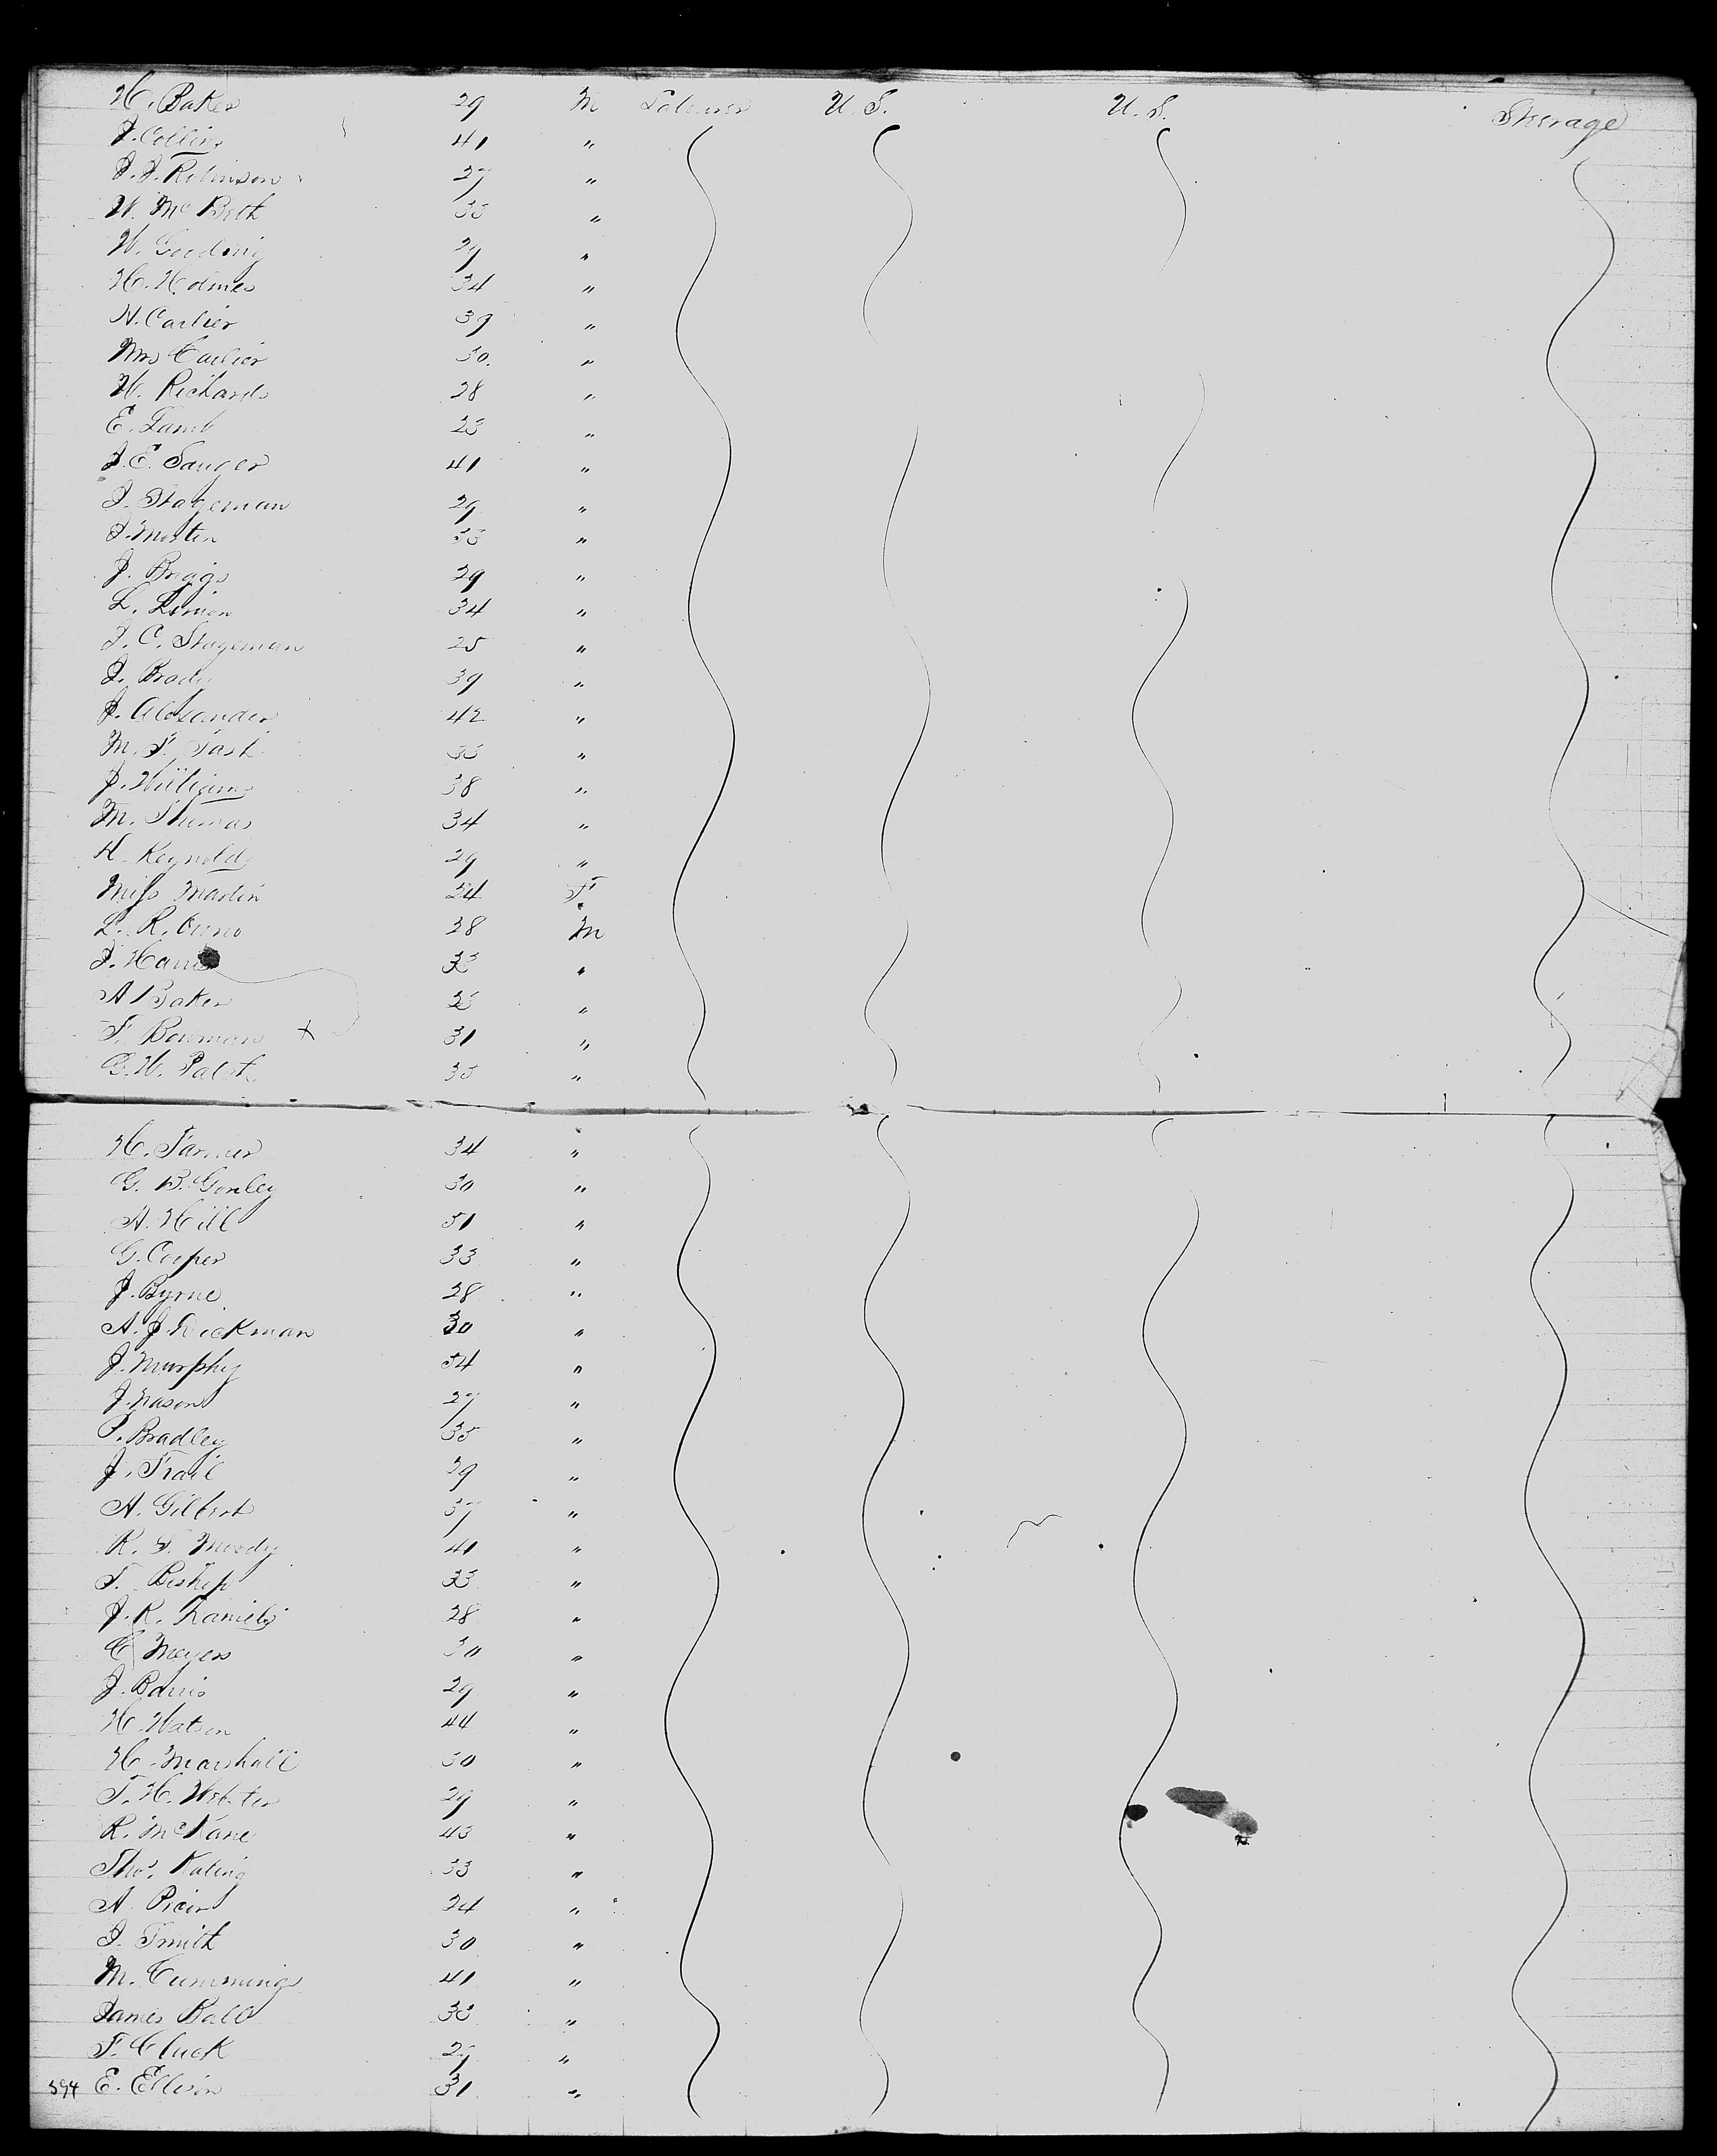 H. Baker 29 M Laborer U. S. U. S. Steerage
J. Collins 41 "
J. J. Robinson 27 "
W. McBeth 33 "
W. Gooding 29 "
H. Holmes 34 "
N. Carlier 39 "
Mrs Carlier 30. "
W. Richards 28 "
E. Lamb 23 "
J. E. Sanger 41 "
J. Stageman 29 "
J. Martin 33 "
J. Briggs 29 "
L. Simon 34 "
J. C. Stageman 25 "
J. Brady 39 "
J. Alexander 42 "
M. F. Tash 33 "
J. Williams 38 "
M. Thomas 34 "
H. Reynolds 29 "
Miss Martin 24 F.
L. R. 28 M
J. Harris 33 "
A Baker 23 "
F. Bowman X 31 "
G. W. Pabst 35 "
H. Farmer 34 "
G. B. Gonley 30 "
A. Hill 51 "
G. Cooper 33 "
J. Byrne 28 "
A. J. Dickman 30 "
J. Murphy 54 "
J. Nason 27 "
P. Bradley 35 "
J. Trail 29 "
A. Gilbert 37 "
R. S. Moody 41 "
T. Bishop 33 "
J. R. Daniels 28 "
C Meyers 30 "
J. Barris 29 "
H Watson 44 "
H. Marshall 30 "
T. H. Webster 29 "
R. McKane 43 "
Thos. Kating 33 "
A. 24 "
J. Smith 30 "
M. Cummings 41 "
James Ball 33 "
F. Cluck 29 "
594 E. Ellison 31 "